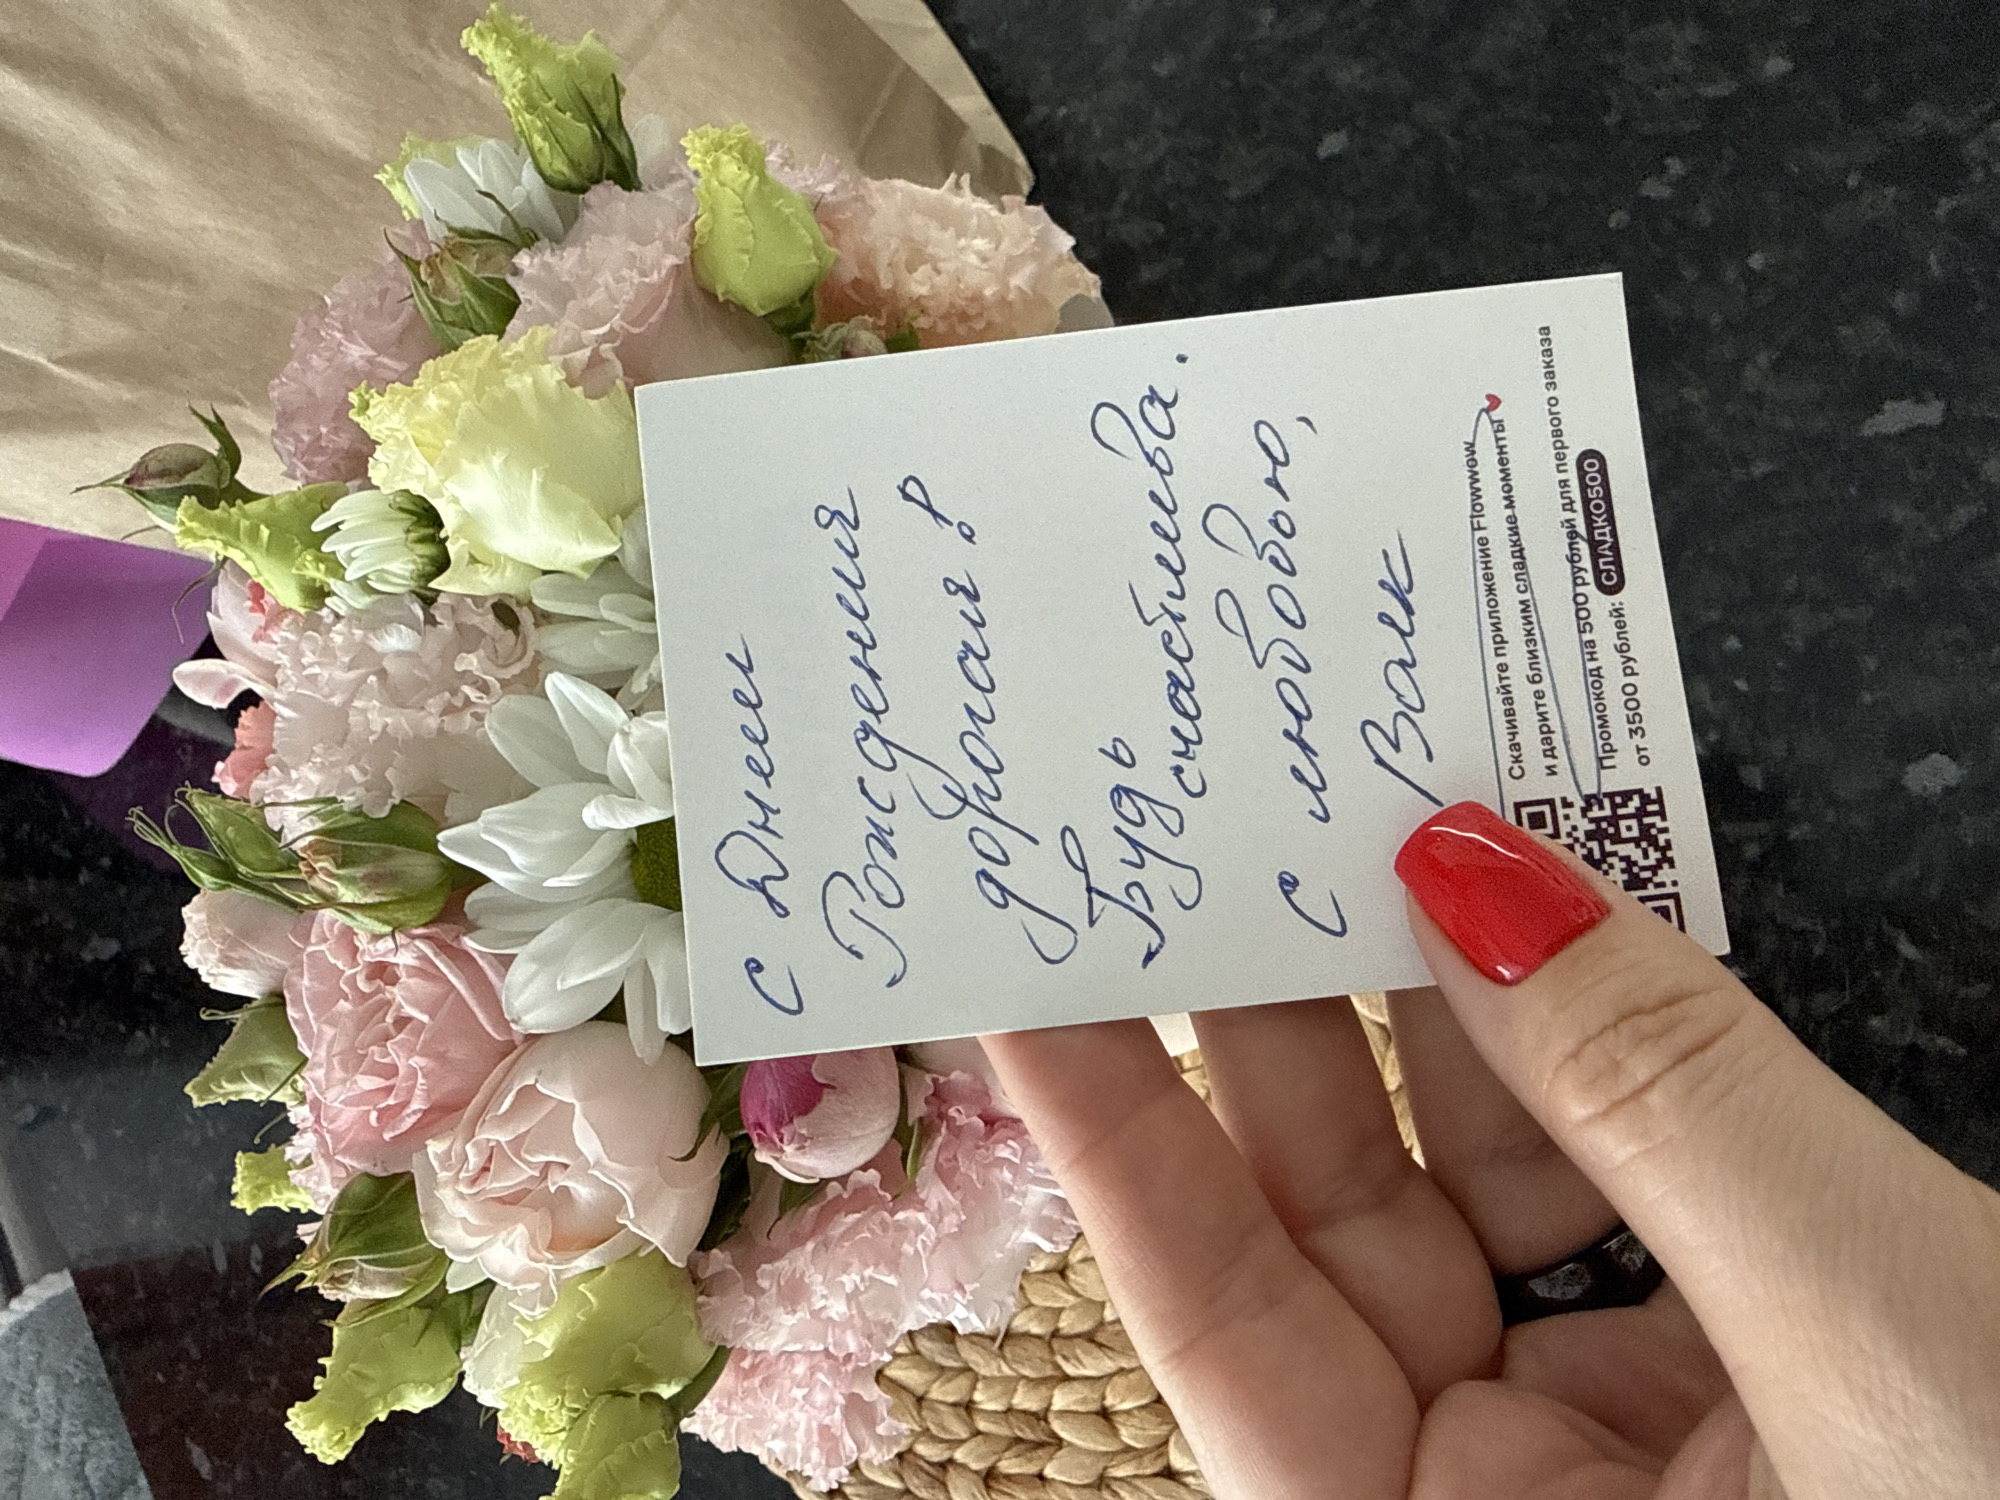 С Днем
Рождения
дорогая!
Будь
счастлива.
С любовью,
Волк
Скачивайте приложение Flowwow
и дарите близким сладкие моменты
Промокод на 500 рублей для первого заказа
от 3500 рублей: СЛАДКО500